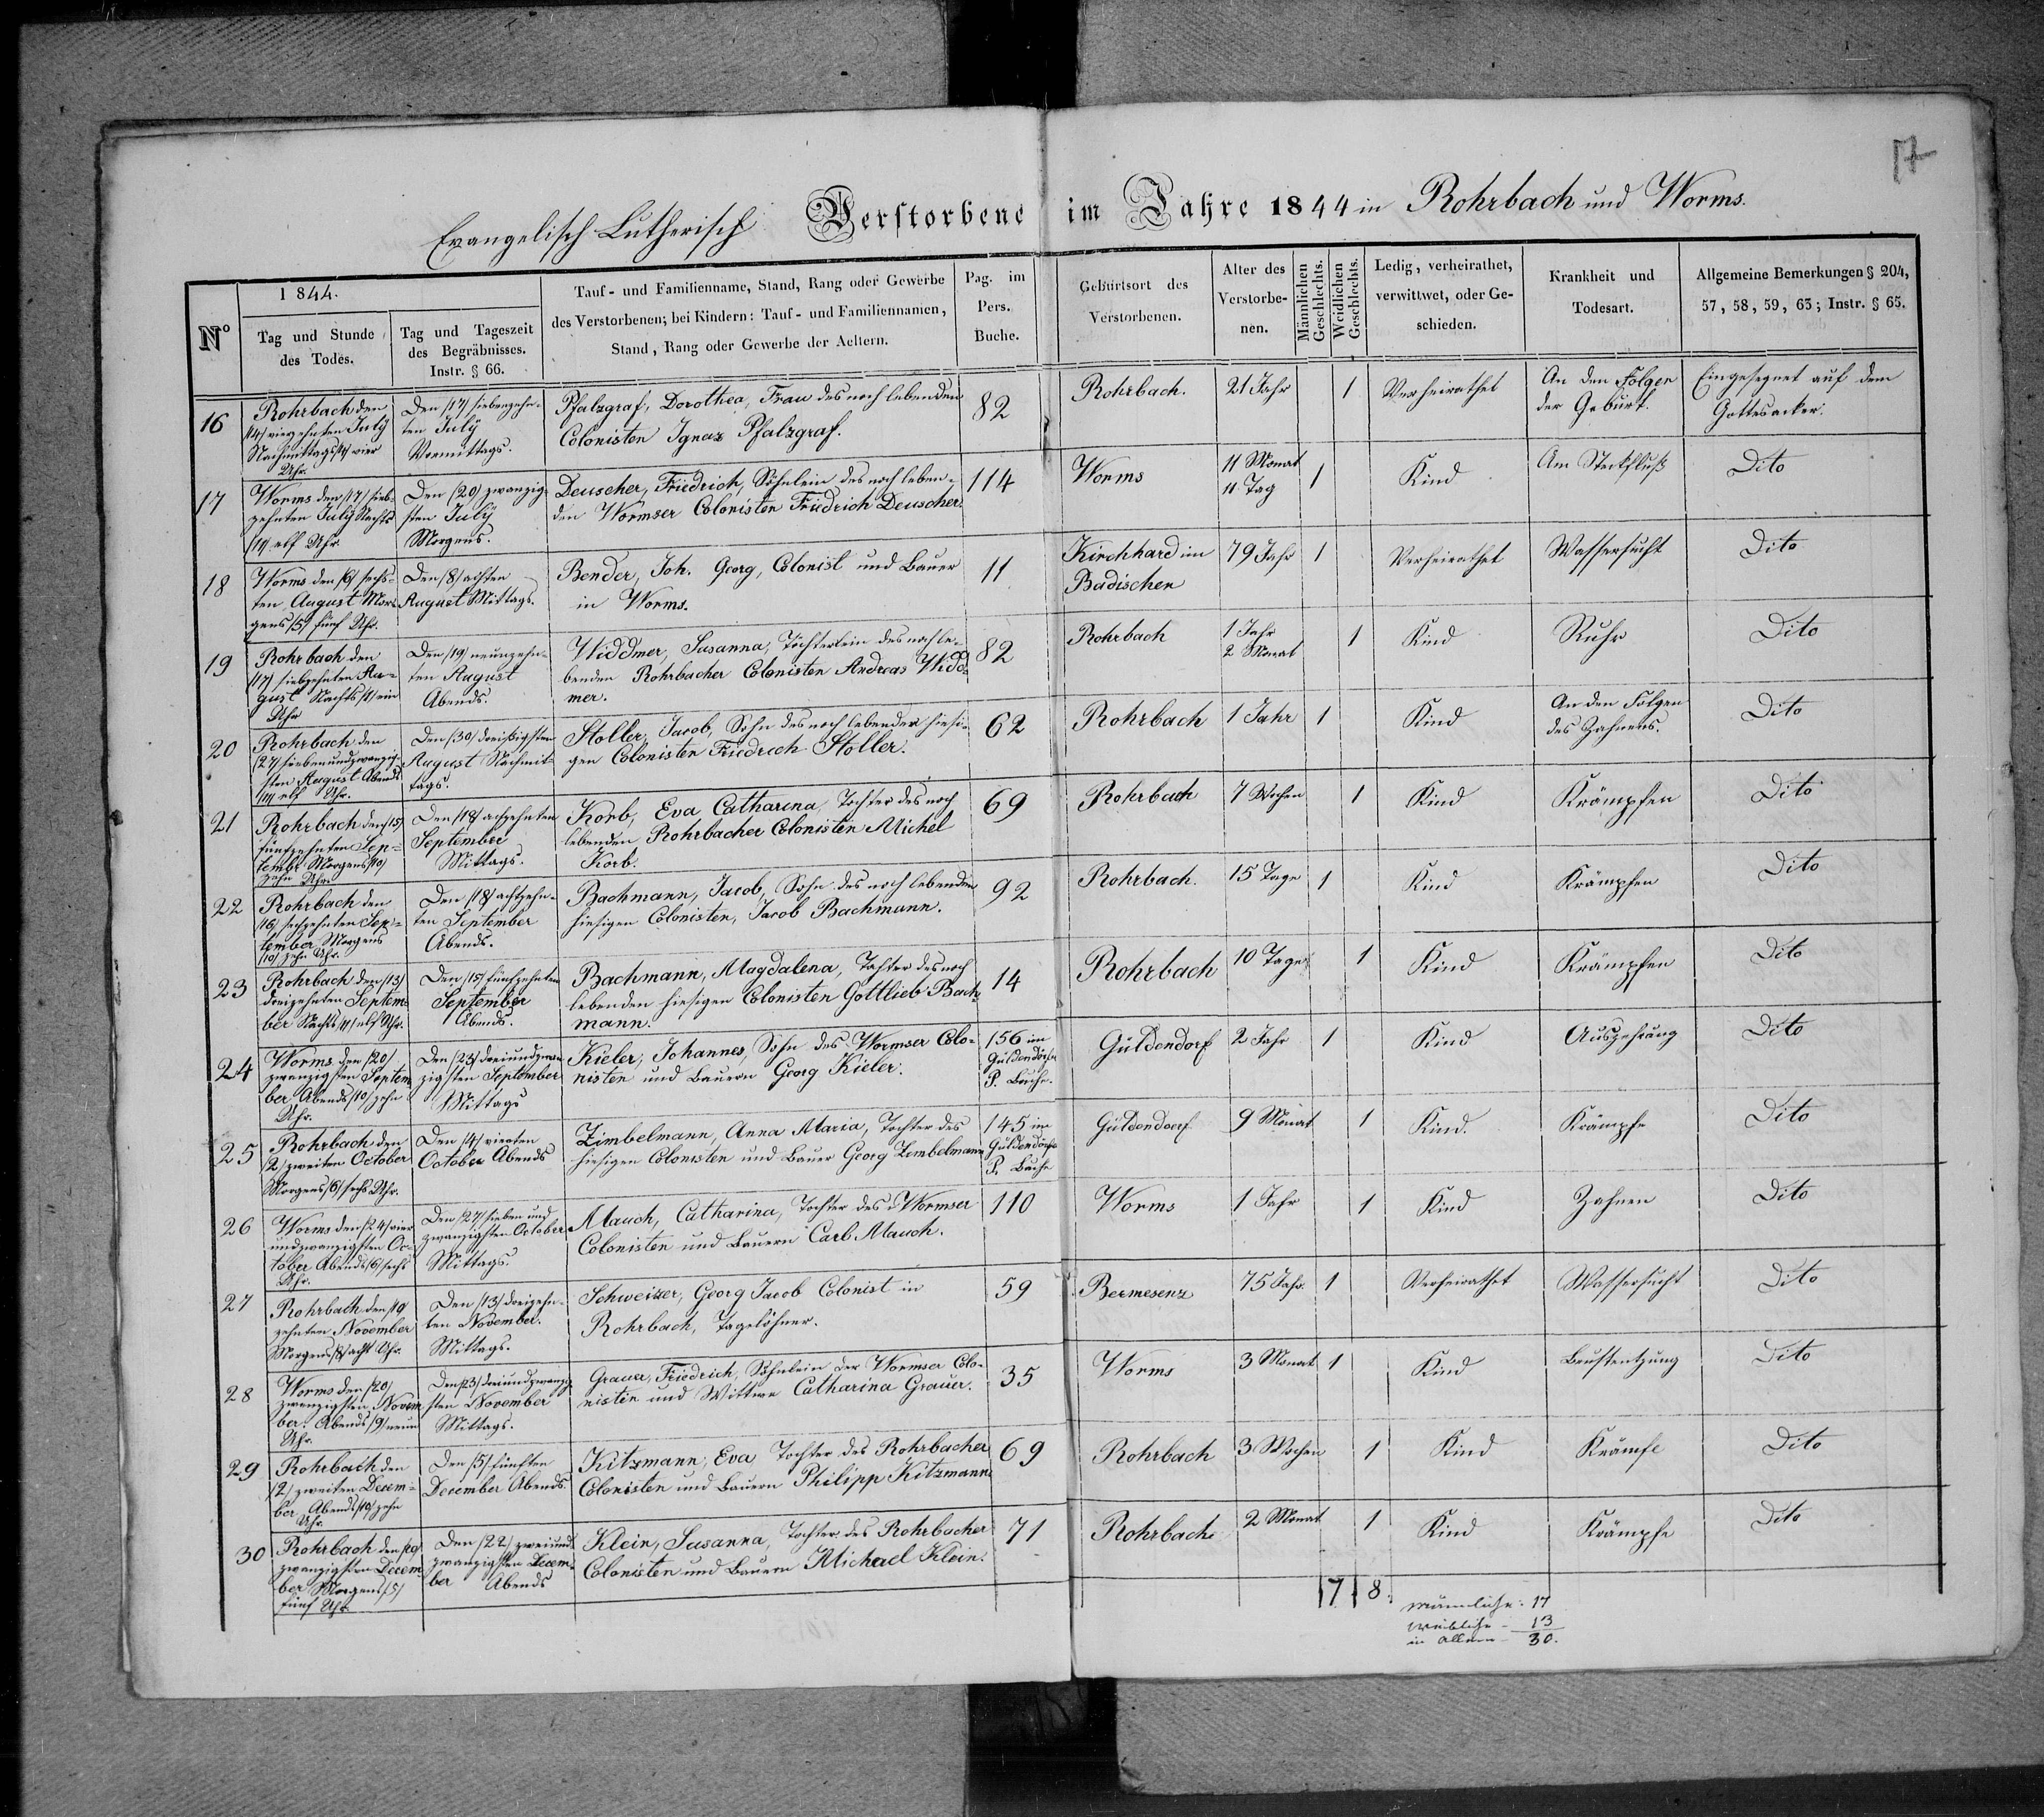 17
Evangelisch Lutherisch Verstorbene im Jahre 1844 in Rohrbach und Worms.
N°
1844.
Tag und Stunde des Todes.
Tag und Tageszeit des Begräbnisses. Instr. § 66.
Tauf- und Familienname, Stand, Rang oder Gewerbe
des Verstorbenen; bei Kindern: Tauf- und Familiennamen,
Stand, Rang oder Gewerbe der Aeltern.
Pag. im Pers. Buche.
Geburtsort des Verstorbenen.
Alter des Verstorbe-nen.
Männlichen Geschlechts.
Weidlichen Geschlechts.
Ledig, verheirathet, verwittwet, oder Ge-schieden.
Krankheit und Todesart.
Allgemeine Bemerkungen § 204, 57, 58, 59, 63; Instr. § 65.
16
Rohrbach den
/14/ vierzehnten July
Nachmittags /4/ vier
Uhr.
Den /17/ siebenzehn-
ten July
Vormittags.
Pfalzgraf, Dorothea, Frau des noch lebenden
Colonisten Ignaz Pfalzgraf.
82
Rohrbach.
21 Jahr
1
Verheirathet
An den Folgen
der Geburt.
Eingesegnet auf dem
Gottesacker.
17
Worms den /17/ sieb-
zehnten July Nachts
/11/ elf Uhr.
Den /20/ zwanzig-
sten July
Morgens.
Deuscher, Friedrich, Söhnlein des noch leben-
den Wormser Colonisten Friedrich Deuscher.
114
Worms
11 Monat
11 Tag
1
Kind
Am Steckfluß
Dito
18
Worms den /6/ sechs-
ten August Mor-
gens /5/ fünf Uhr.
Den /8/ achten
August Mittags.
Bender, Joh. Georg, Colonist und Bauer
in Worms.
11
Kirchhard im
Badischen
79 Jahr
1
Verheirathet
Wassersucht
Dito
19
Rohrbach den
/17/ siebzehnten Au-
gust Nachts /1/ ein
Uhr
Den /19/ neunzehn-
ten August
Abends.
Widdmer, Susanna, Töchterlein des noch le-
benden Rohrbacher Colonisten Andreas Widd-
mer.
82
Rohrbach
1 Jahr
2 Monat
1
Kind
Ruhr
Dito
20
Rohrbach den
/27/ siebenundzwanzig-
sten August Abends
/11/ elf Uhr.
Den /30/ dreißigsten
August Nachmit-
tags.
Stoller, Jacob, Sohn des noch lebenden hiesi-
gen Colonisten Friedrich Stoller.
62
Rohrbach
1 Jahr
1
Kind
An den Folgen
des Zahnens.
Dito
21
Rohrbach den /15/
fünfzehnten Sep-
tember Morgens /10/
zehn Uhr.
Den /18/ achzehnten
September
Mittags.
Korb, Eva Catharina, Tochter des noch
lebenden Rohrbacher Colonisten Michel
Korb.
69
Rohrbach
7 Wochen
1
Kind
Krämpfen
Dito
22
Rohrbach den
/16/ sechzehnten Sep-
tember Morgens
/10/ zehn Uhr.
Den /18/ achtzehn-
ten September
Abends.
Bachmann, Jacob, Sohn des noch lebenden
hiesigen Colonisten, Jacob Bachmann.
92
Rohrbach.
15 Tage
1
Kind
Krämpfen
Dito
23
Rohrbach den /13/
dreizehnten Septem-
ber Nachts /11/ elf Uhr.
Den /15/ fünfzehnten
September
Abends.
Bachmann, Magdalena, Tochter des noch
lebenden hiesigen Colonisten Gottlieb Bach-
mann.
14
Rohrbach
10 Tage
1
Kind
Krämpfen
Dito
24
Worms den /20/
zwanzigsten Septem-
ber Abends /10/ zehn
Uhr.
Den /23/ dreiundzwan-
zigsten September
Mittags
Kieler, Johannes, Sohn des Wormser Colo-
nisten und Bauern Georg Kieler.
156 im
Güldendorfer
P. Buche.
Güldendorf
2 Jahr
1
Kind
Auszehrung
Dito
25
Rohrbach den
/2/ zweiten October
Morgens /6/ sechs Uhr.
Den /4/ vierten
October Abends
Zimbelmann, Anna Maria, Tochter des
hiesigen Colonisten und Bauer Georg Zimbelmann
145 im
Güldendorfer
P. Buche
Güldendorf
9 Monat
1
Kind.
Krämpfe
Dito
26
Worms den /24/ vier
undzwanzigsten Oc-
tober Abends /6/ sechs
Uhr.
Den /27/ sieben und
zwanzigsten October
Mittags.
Mauch, Catharina, Tochter des Wormser
Colonisten und Bauern Carl Mauch.
110
Worms
1 Jahr
1
Kind
Zahnen
Dito
27
Rohrbach den /10/
zehnten November
Morgens /8/ acht Uhr.
Den /13/ dreizehn-
ten November.
Mittags.
Schweizer, Georg Jacob Colonist in
Rohrbach, Tagelöhner.
59
Bermesenz
75 Jahr.
1
Verheirathet
Wassersucht
Dito
28
Worms den /20/
zwanzigsten Novem-
ber. Abends /9/ neun
Uhr.
Den /23/ dreiundzwanzig-
sten November
Mittags.
Grauer, Friedrich, Söhnlein der Wormser Colo-
nisten und Wittwe Catharina Grauer.
35
Worms
3 Monat
1
Kind
Dito
29
Rohrbach den
/2/ zweiten Decem-
ber Abends /10/ zehn
Uhr.
Den /5/ fünften
December Abends
Kitzmann, Eva, Tochter des Rohrbacher
Colonisten und Bauern Philipp Kitzmann
69
Rohrbach
3 Wochen
1
Kind
Krämfe
Dito
30
Rohrbach den /20/
zwanzigsten Decem-
ber Morgens /5/
fünf Uhr.
Den /22/ zweiund-
zwanzigsten Decem-
ber Abends
Klein, Susanna, Tochter des Rohrbacher
Colonisten und Bauern Michael Klein.
71
Rohrbach
2 Monat
1
Kind
Krämpfe
Dito
7 8.
männliche: 17
weibliche - 13
in allem - 30.